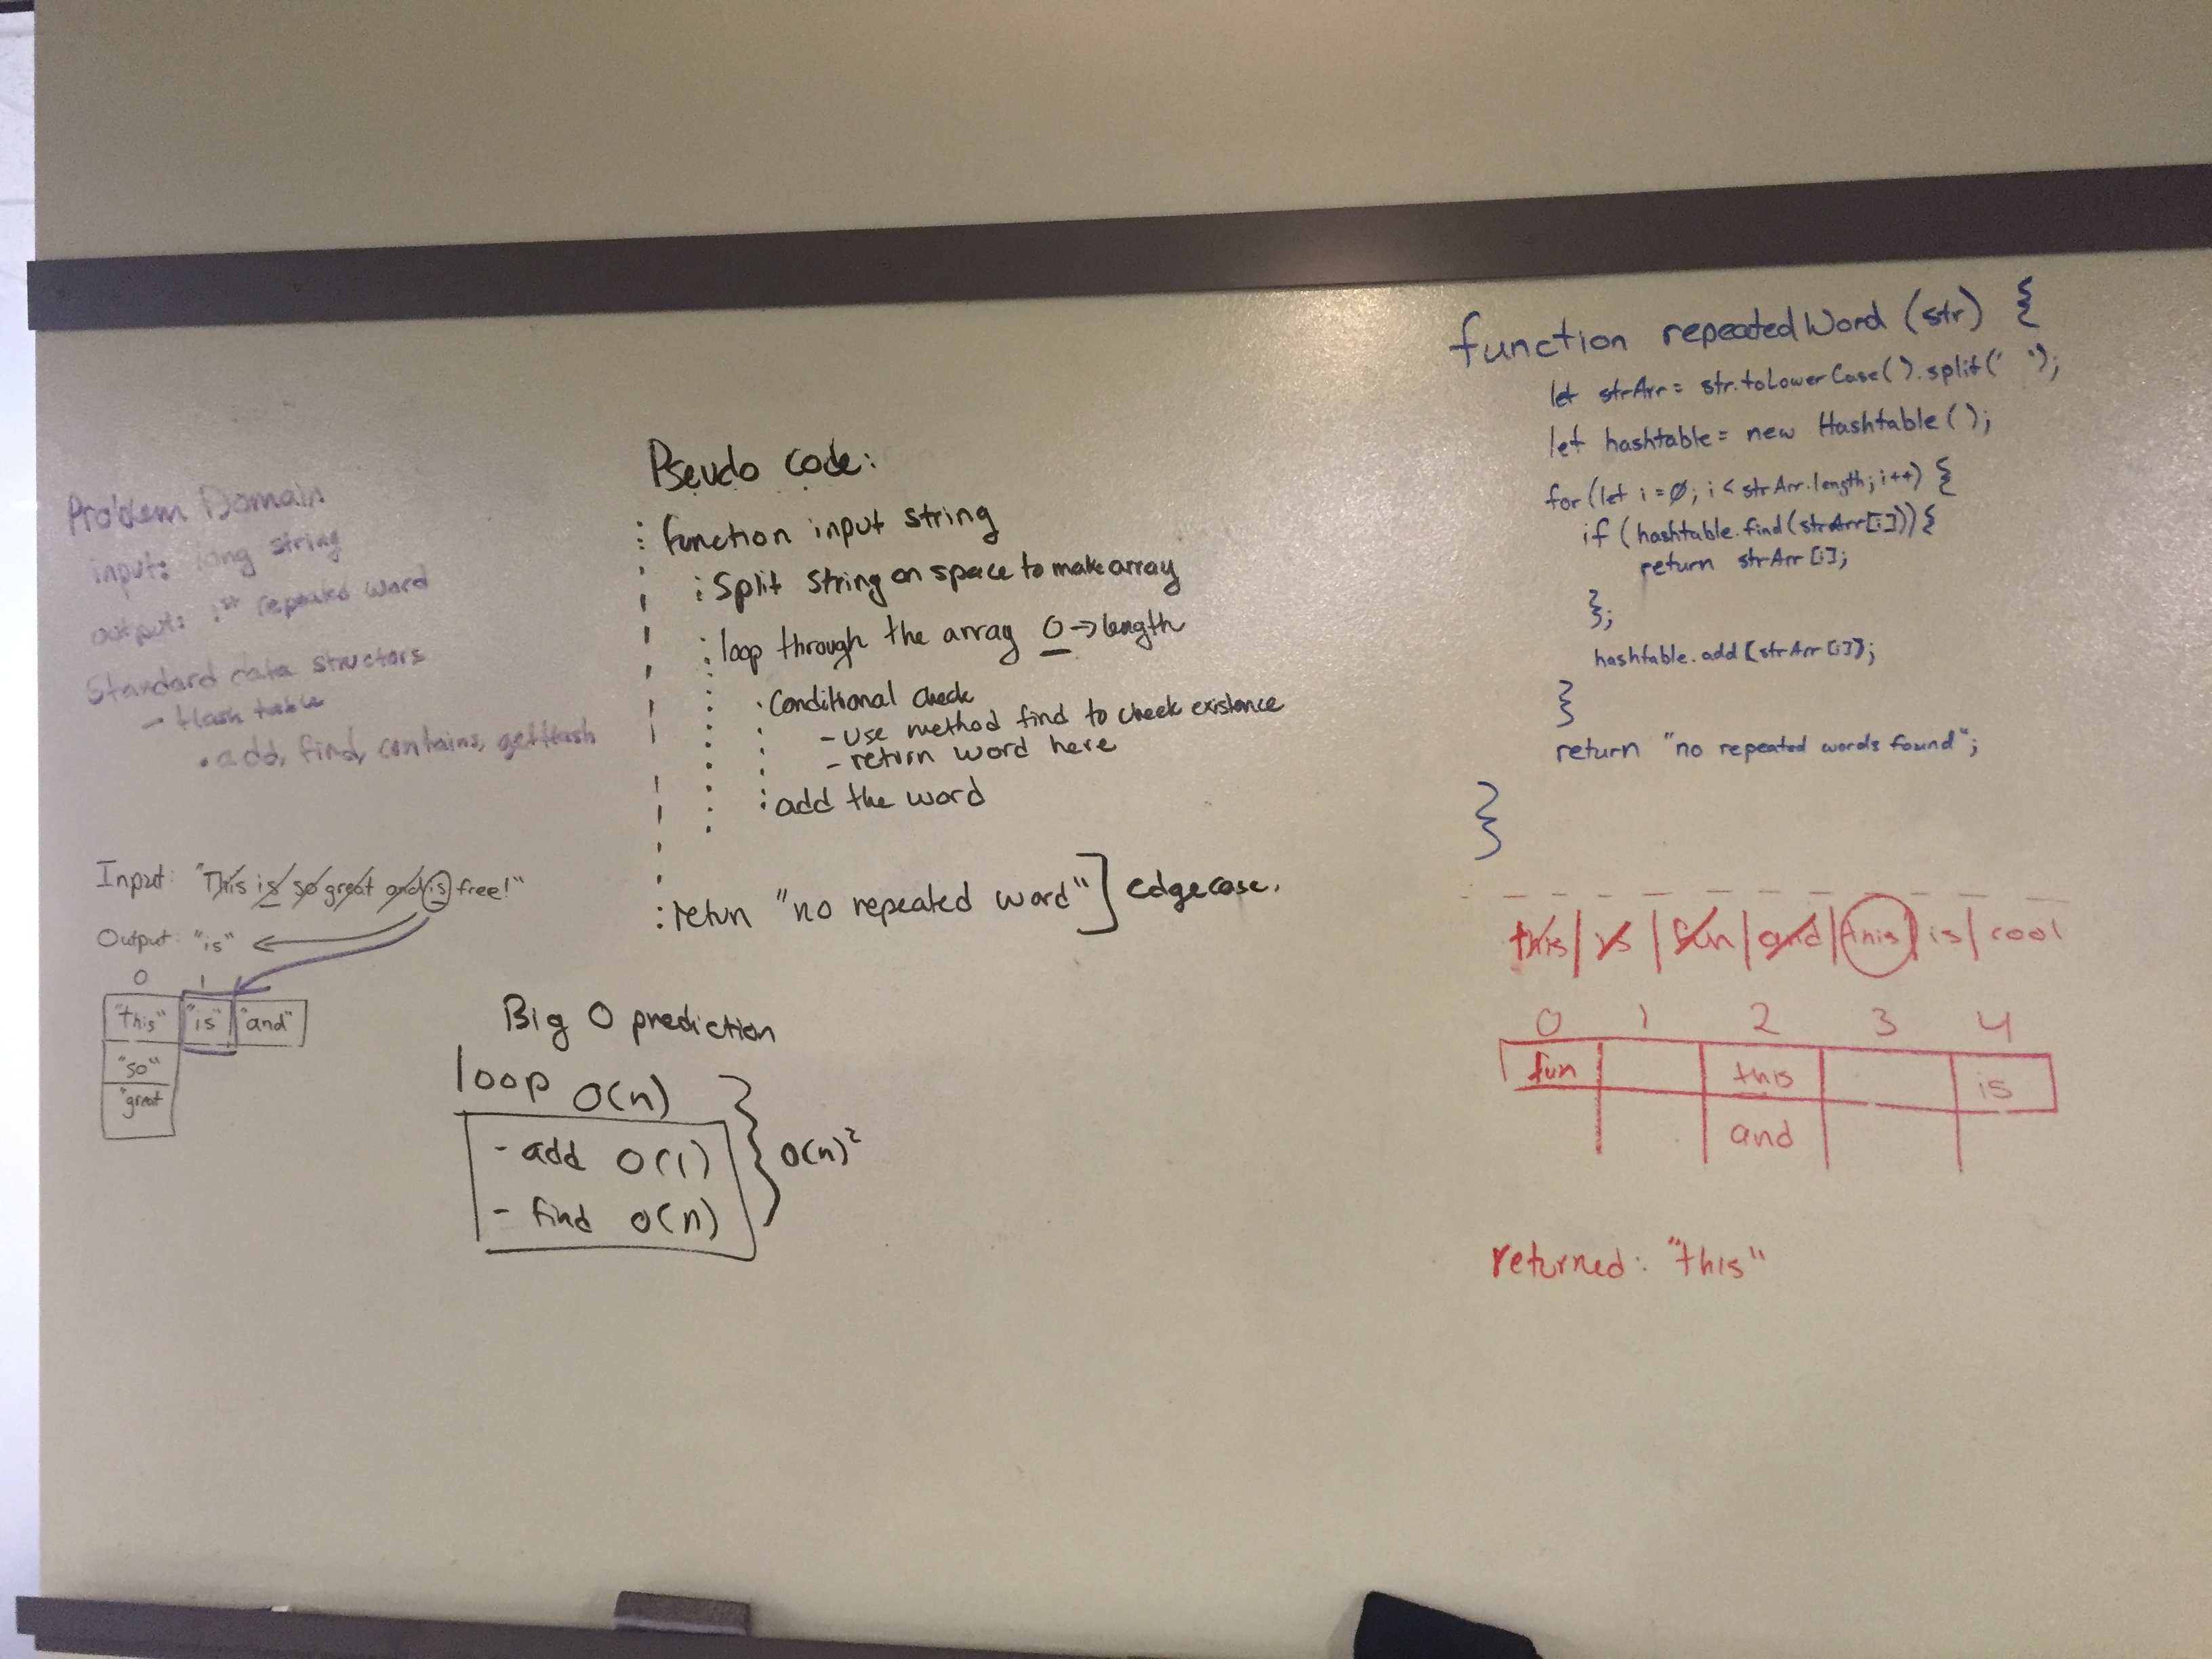 Problem Domain
input: long string
output: 1st repeated word
Standard data structors
- Hash table
• add, find, contains, getHash
Input: "This is so great and is free!"
Output: "is"
0 1
"this" "is" "and"
"so"
"great
Pseudo code:
function input string
Split string on space to make array
loop through the array 0 → length
Conditional check
- use method find to check existence
- return word here
add the word
retun "no repeated word" ] edgecase.
Big O prediction
loop O(n)
- add O(1)
- find O(n)
O(n)²
function repeatedWord (str) {
let strArr = str.toLowerCase().split(' ');
let hashtable = new Hashtable();
for (let i = 0; i < strArr.length; i++) {
if (hashtable.find(strArr[i])) {
return strArr[i];
};
hashtable.add(strArr[i]);
}
return "no repeated words found";
}
this | is | fun | and | this | is | cool
0 1 2 3 4
fun this is
and
returned: "this"